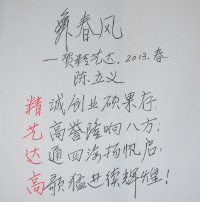 乘春风
——贺精艺达. 2013.春
陈立义
精诚创业硕果存,
艺高誉隆响八方;
达通四海扬帆启,
高歌猛进续辉煌!